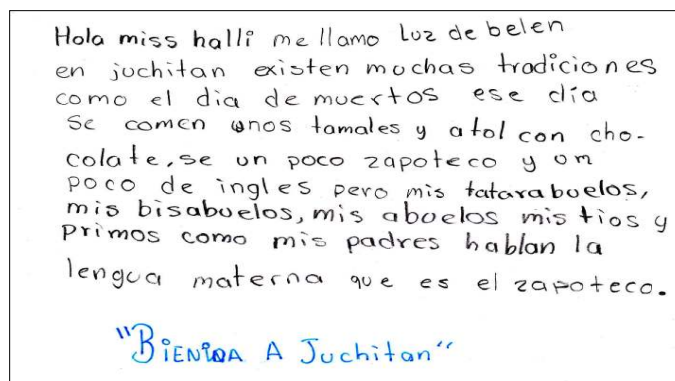 Hola miss halli me llamo Luz de belen
en juchitan existen muchas tradiciones
como el dia de muertos ese día
se comen unos tamales y atol con cho-
colate, se un poco zapoteco y un
poco de ingles pero mis tatarabuelos,
mis bisabuelos, mis abuelos mis tios y
primos como mis padres hablan la
lengua materna que es el zapoteco.
"BIENIDA A Juchitan"